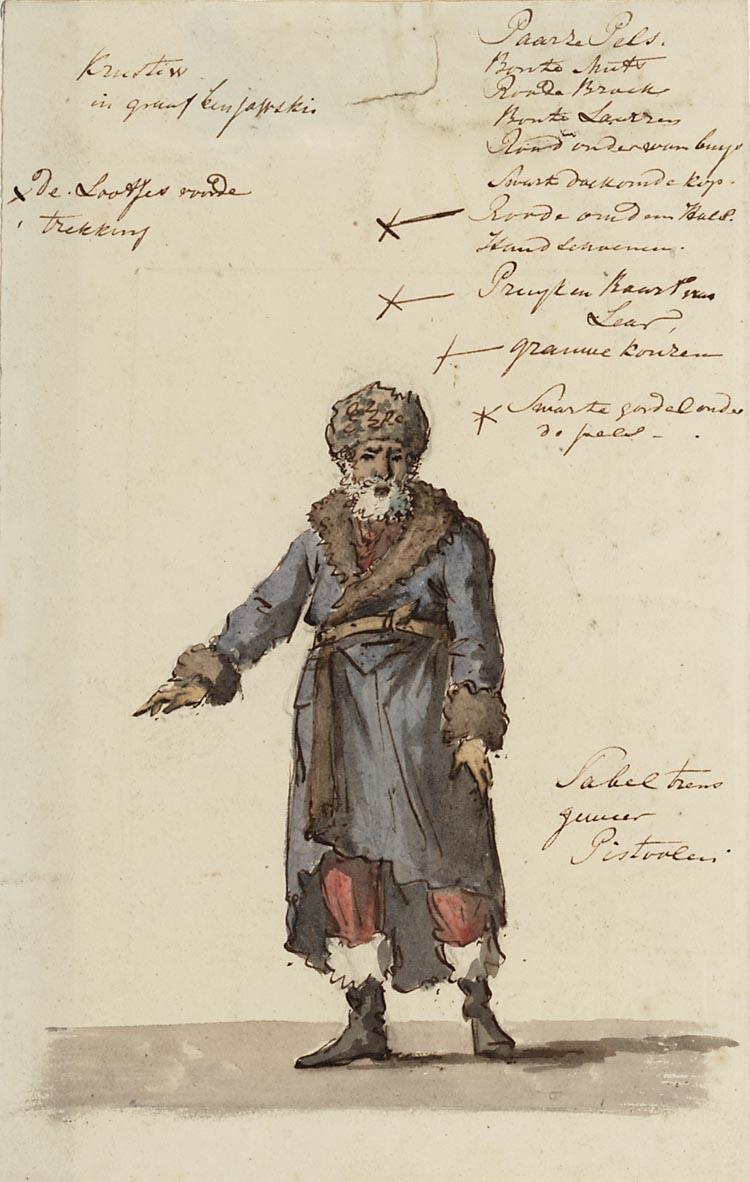 Krustiew
in graaf Benjowski
x De Lootjes voor de
trekking
Paarze Pels.
Bonte Muts
Roode Broek
Bonte Laarzen
Rood onder wambuys
Swart doek om de kop.
Roode om den Hals.
Handschoenen.
Pruyk en Baart van
Lear
grauwe kousen
Swarte gordel onder
de pels
Sabel
geweer
Pistoolen